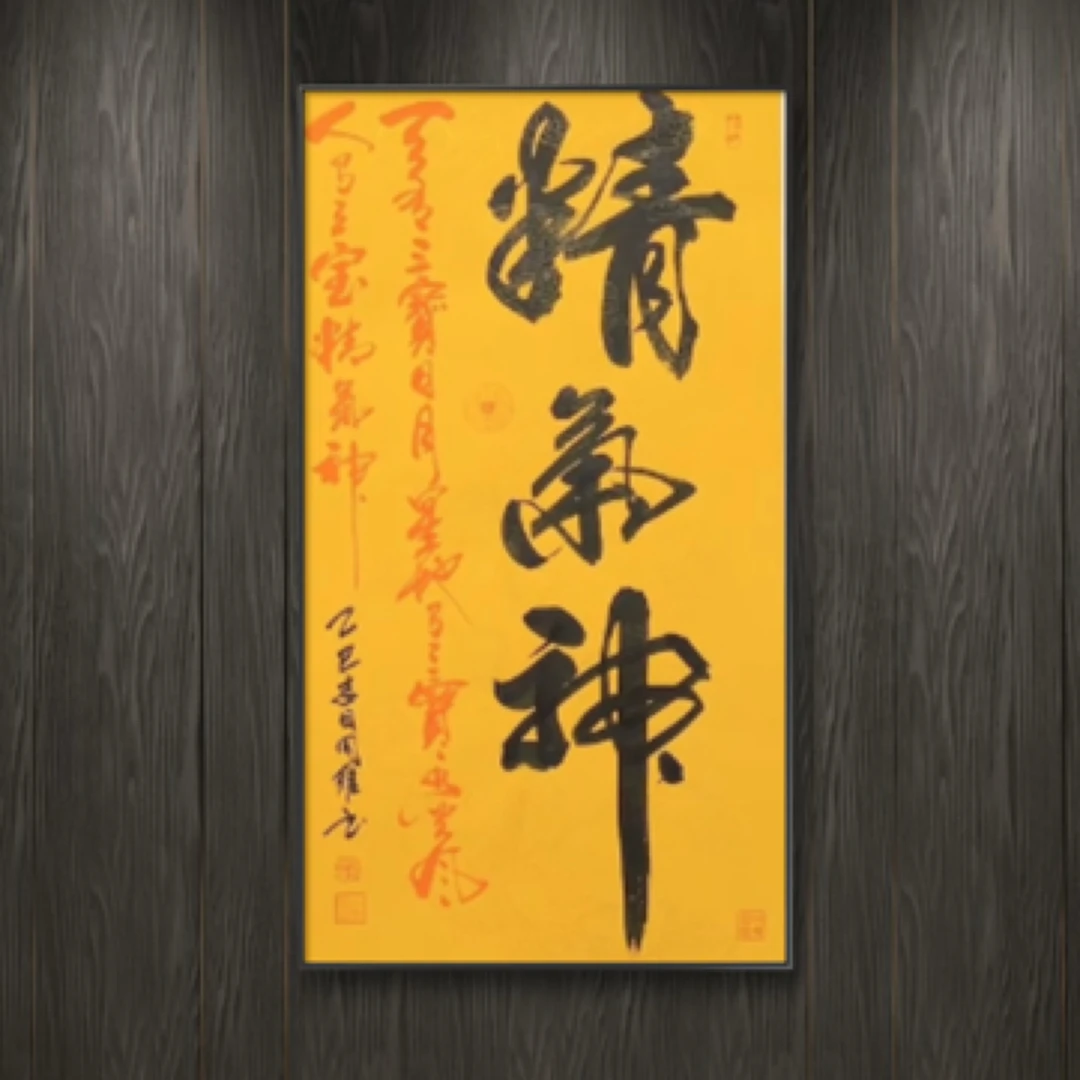 精氣神
天有三寶日月星地有三寶水火風
人有三宝精氣神
乙巳春月國權书